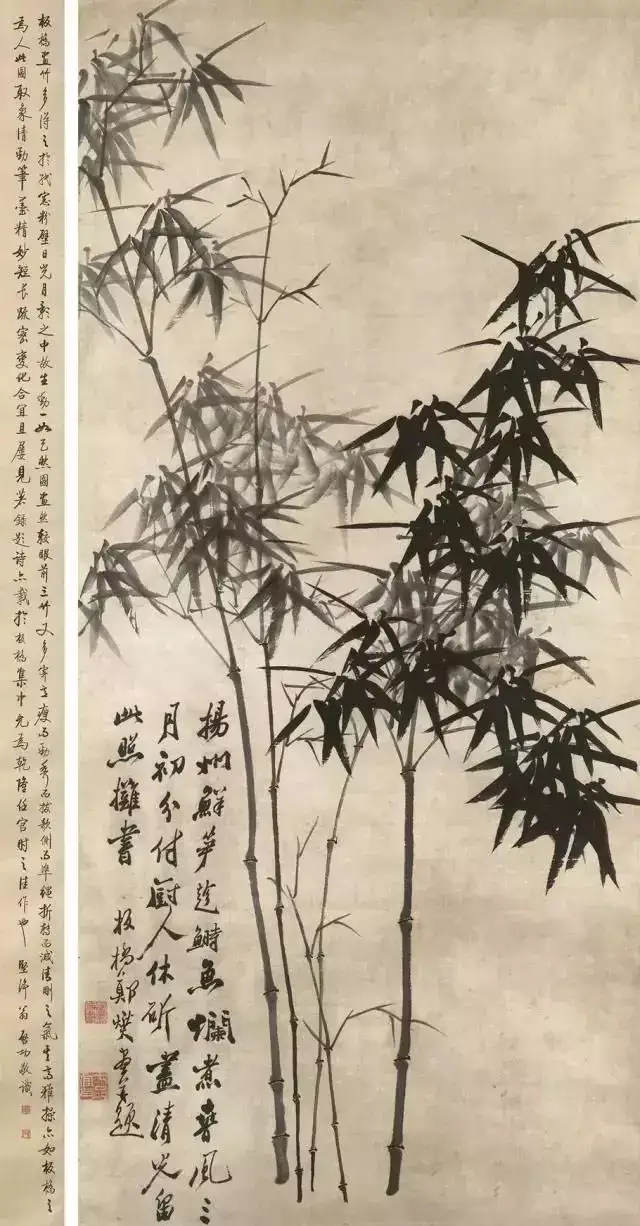 揚州鮮笋趁鰣魚爛煮春風三
月初分付厨人休斫盡清光留
此照攤書 板橋鄭燮畫并題
板橋畫竹多得之於紙窗粉壁日光月影之中故生動一如已然圖畫然較眼前之竹又多寄高瘦而勁秀而拔欹側而準繩折轉而 剛之氣其高雅操亦如板橋之
為人此图取象清勁筆墨精妙短長疏密變化合宜且屢見著錄題诗亦載於板橋集中尤為乾隆任官時之佳作也 堅淨翁啓功敬識